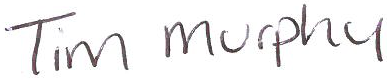 Tim Murphy